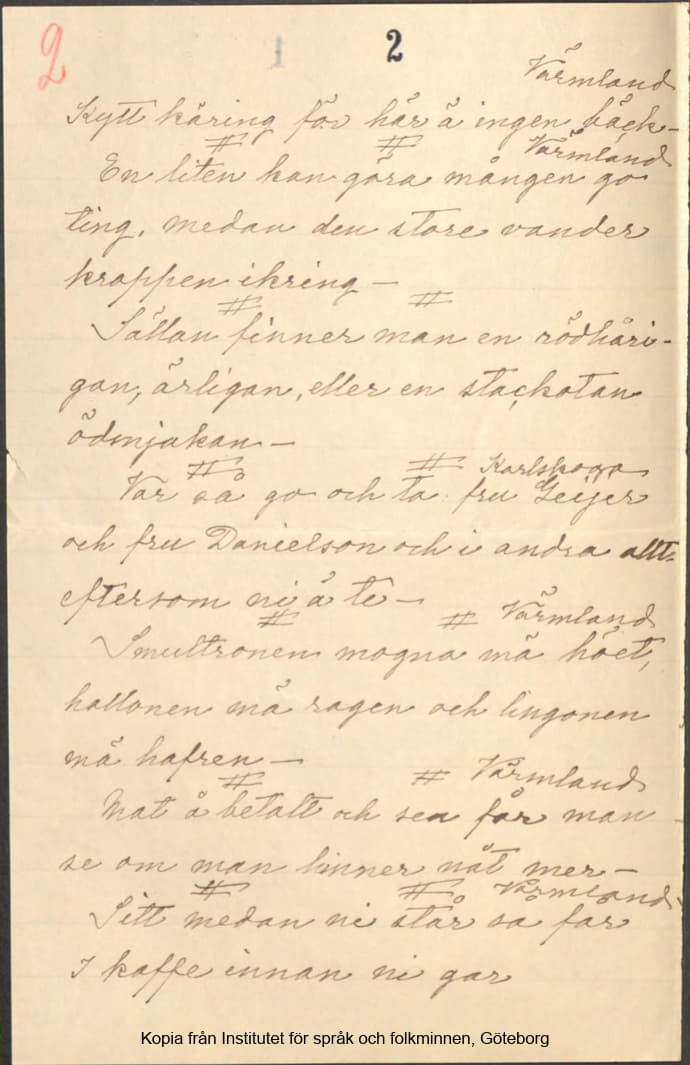 2 1 2
Värmland
Kytt käring för här ä ingen bäck-
# # Värmland
En liten kan göra mången go
ting, medan den store vander
kroppen ikring -
# #
Sällan finner man en rödhåri-
gan, ärligan, eller en stackotan
ödmjukan -
# # Karlskoga
Var så go och ta fru Geijer
och fru Danielson och i andra allt-
eftersom ni ä te -
# # Värmland
Smultronen mogna mä höet,
hallonen mä ragen och lingonen
mä hafren -
# # Värmland
Mat å betalt och sen får man
se om man hinner nåt mer -
# # Värmland
Sitt medan ni står så får
I kaffe innan ni gar
Kopia från Institutet för språk och folkminnen, Göteborg